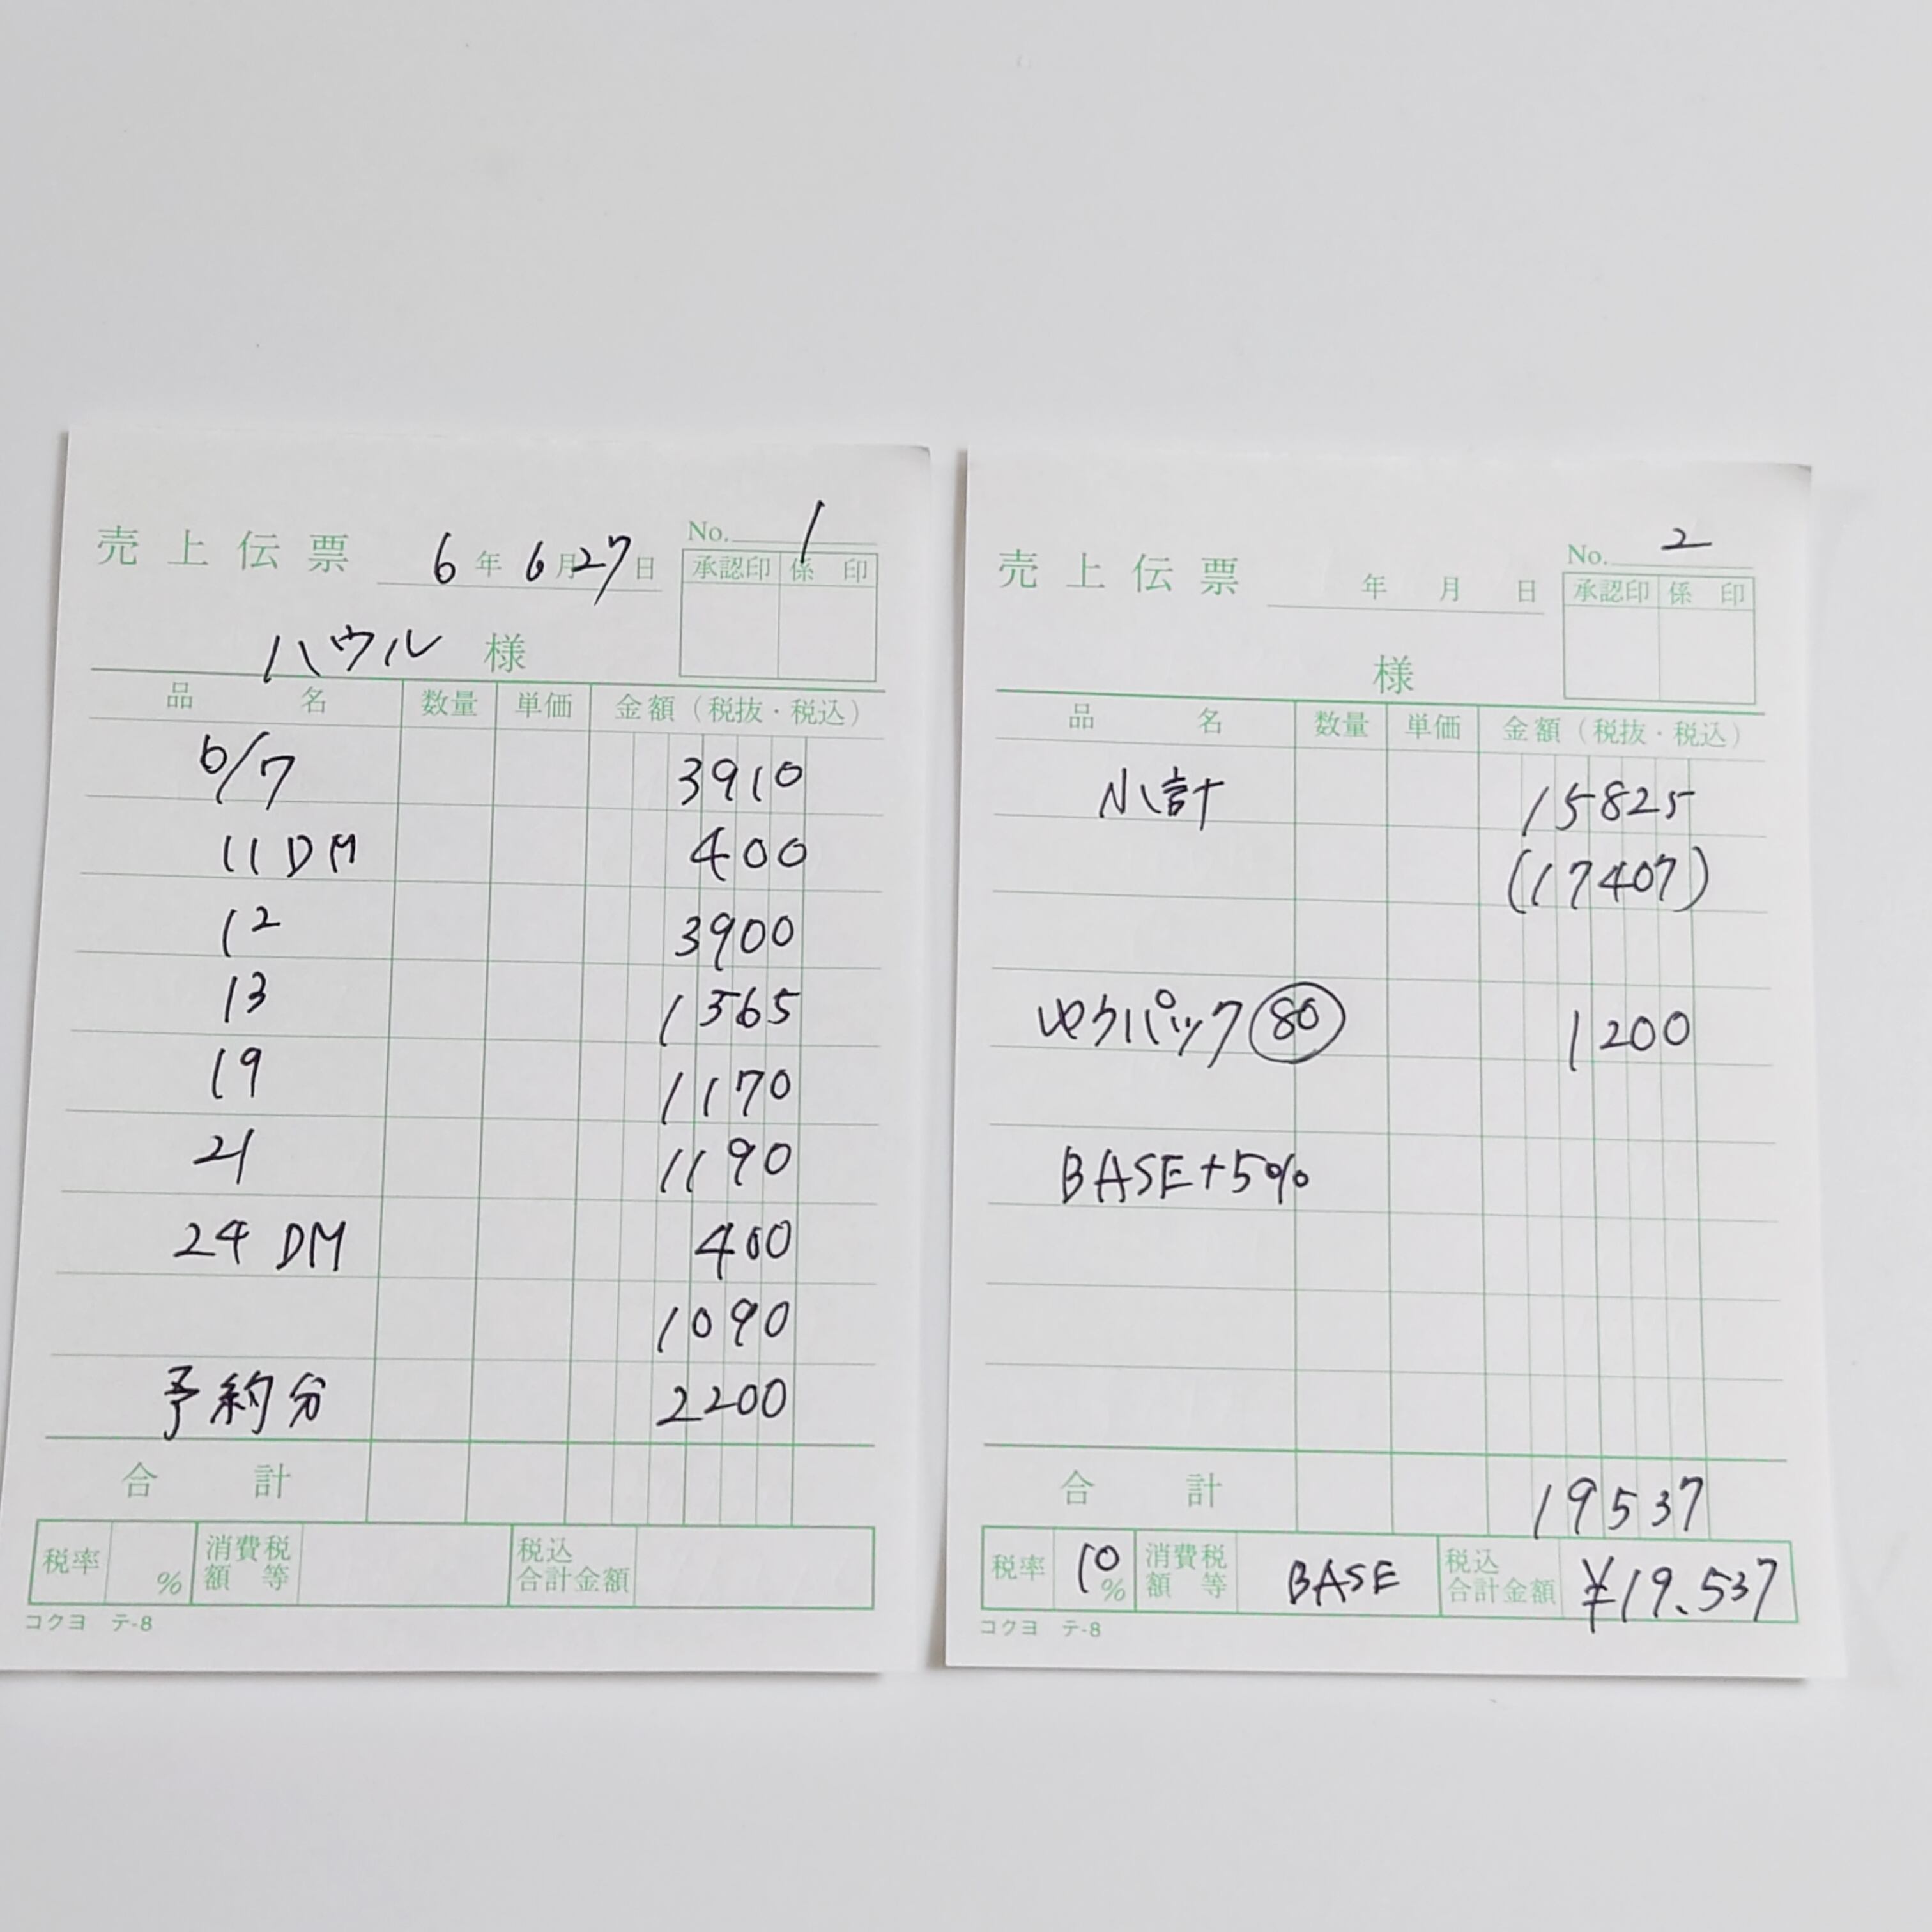 売上伝票 6年6月27日 No. 1
承認印 係印
ハウル 様
品名 数量 単価 金額（税抜・税込）
6/7 3910
11 DM 400
12 3900
13 1565
19 1170
21 1190
24 DM 400
1090
予約分 2200
合計
税率 % 消費税額等 税込合計金額
コクヨ テ-8
売上伝票 年 月 日 No. 2
承認印 係印
様
品名 数量 単価 金額（税抜・税込）
小計 15825
(17407)
ゆうパック 80 1200
BASE+5%
合計 19537
税率 10% 消費税額等 BASE 税込合計金額 ¥19.537
コクヨ テ-8